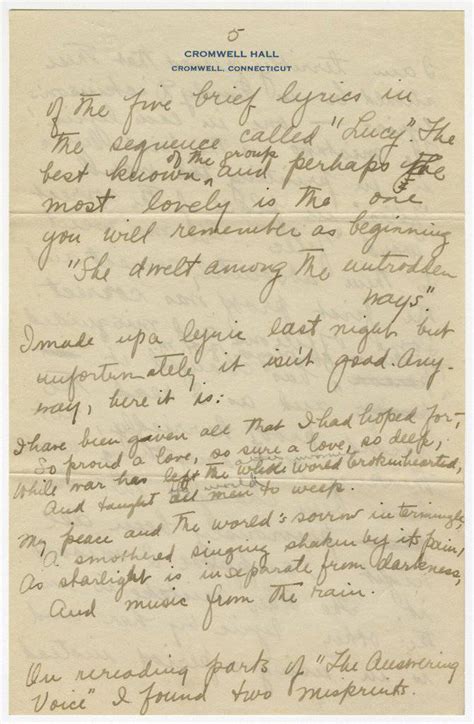 5
CROMWELL HALL
CROMWELL, CONNECTICUT
of the five brief lyrics in
the sequence called "Lucy". The
best known of the group and perhaps the
most lovely is the one
you will remember as beginning
"She dwelt among the untrodden
ways"
I made up a lyric last night but
unfortunately it isn't good. Any-
way, here it is:
I have been given all that I had hoped for,
So proud a love, so sure a love, so deep,
While war has left the whole world brokenhearted,
And taught all men to weep.
My peace and the world's sorrow intermingle,
A smothered singing shaken by its pain,
As starlight is inseparate from darkness,
And music from the rain.
On rereading parts of "The Answering
Voice" I found two misprints.